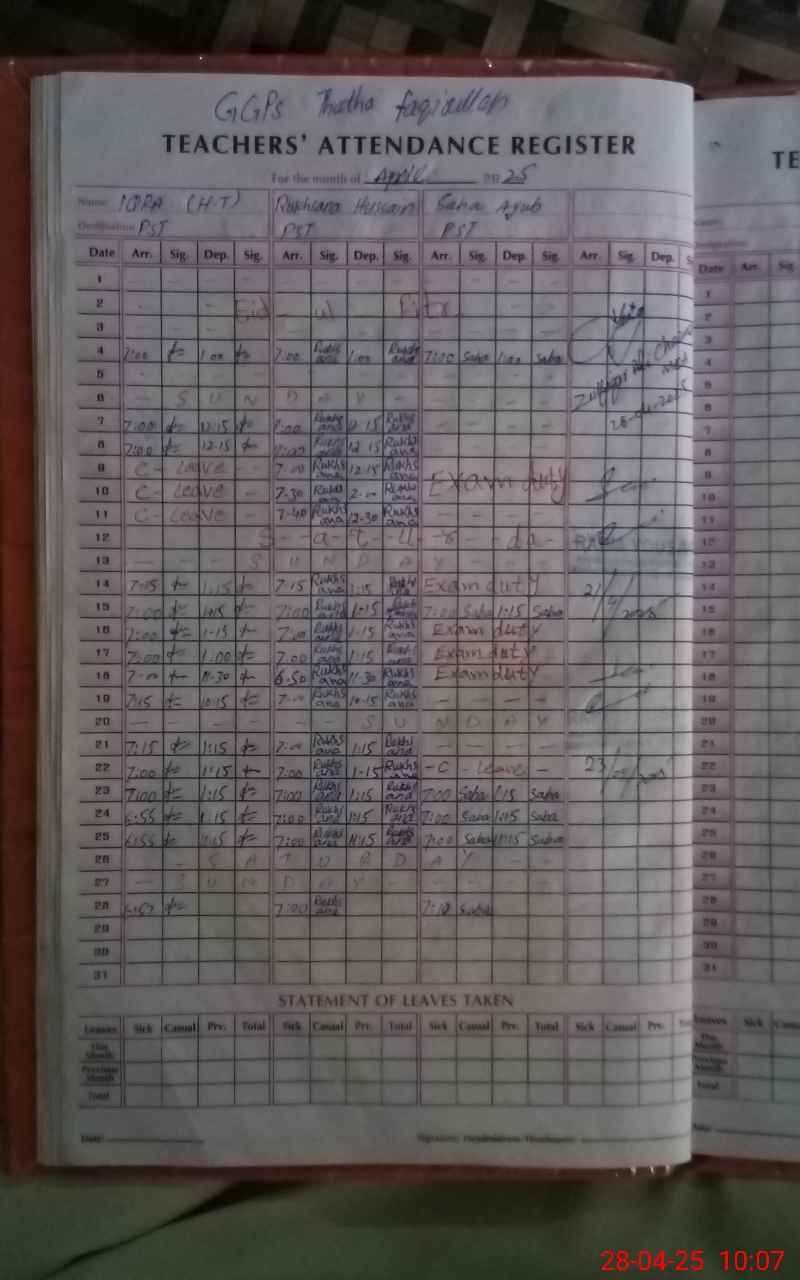 GGPS Thatha faqirullah
TEACHERS' ATTENDANCE REGISTER
For the month of April 20 25
Name IQRA (H-T) Rukhsana Hussain Saba Ayub
Designation PST PST PST
Date Arr. Sig. Dep. Sig. Arr. Sig. Dep. Sig. Arr. Sig. Dep. Sig. Arr. Sig. Dep.
1
2 Eid - ul - Fitr
3
4 7:00 1:00 7:00 Rukhsana 1:00 Rukhsana 7:00 Saba 1:00 Saba
5
6 S U N D A Y
7 7:00 12:15 Rukhsana 12:15 Rukhsana
8 7:00 12:15 Rukhsana 12:15 Rukhsana
9 C - Leave - 7:00 Rukhsana 12:15 Rukhsana
10 C - Leave - 7-30 Rukhsana 2:00 Rukhsana Exam duty
11 C - Leave - 7-40 Rukhsana 12-30 Rukhsana
12 S - a - t - u - r - da -
13 S U N D A Y
14 7-15 1:15 7:15 Rukhsana 1:15 Rukhsana Exam duty
15 7:00 1:15 7:00 Rukhsana 1-15 Rukhsana 7:00 Saba 1:15 Saba
16 7:00 1-15 7:00 Rukhsana 1-15 Rukhsana Exam duty
17 7:00 1:00 7:00 Rukhsana 1:15 Rukhsana Exam duty
18 7-00 11-30 6-50 Rukhsana 11-30 Rukhsana Exam duty
19 7:15 10:15 7-00 Rukhsana 10-15 Rukhsana
20 S U N D A Y
21 7:15 1:15 7-00 Rukhsana 1:15 Rukhsana
22 7:00 1:15 7:00 Rukhsana 1-15 Rukhsana - C - Leave -
23 7:00 1:15 7:00 Rukhsana 1:15 Rukhsana 7:00 Saba 1:15 Saba
24 6:55 1:15 7:00 Rukhsana 1:15 Rukhsana 7:00 Saba 1:15 Saba
25 6:55 11:15 7:00 Rukhsana 11:15 Rukhsana 7:00 Saba 11:15 Saba
26 S A T U R D A Y
27 S U N D A Y
28 6:57 7:00 Rukhsana 7:10 Saba
29
30
31
28-04-2025
STATEMENT OF LEAVES TAKEN
Leaves Sick Casual Prv. Total Sick Casual Prv. Total Sick Casual Prv. Total Sick Casual Prv.
This Month
Previous Month
Total
Date:
TE
Date Arr. Sig
1
2
3
4
5
6
7
8
9
10
11
12
13
14
15
16
17
18
19
20
21
22
23
24
25
26
27
28
29
30
31
Leaves Sick
This Month
Previous Month
Total
28-04-25 10:07